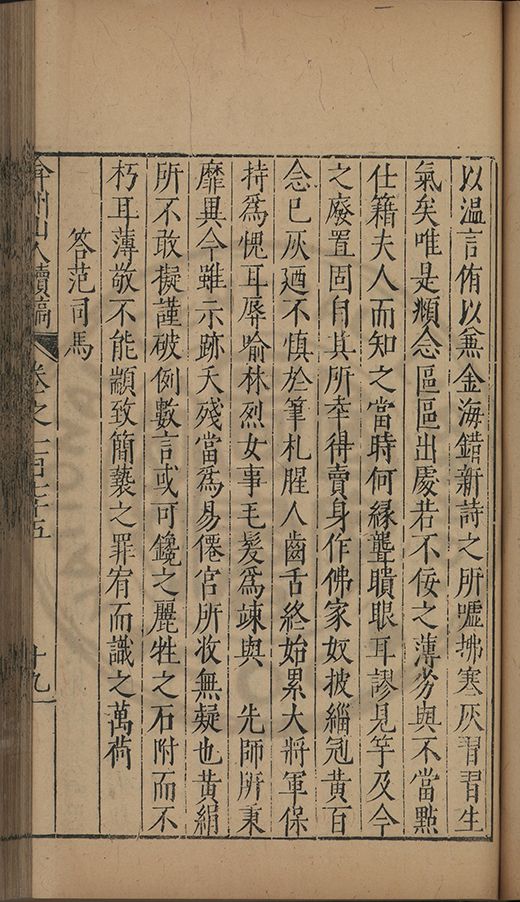 以溫言侑以兼金海錯新詩之所噓拂寒灰習習生
氣矣唯是頫念區區出處若不佞之薄劣與不當點
仕籍夫人而知之當時何緣聾聵眼耳謬見竽及今
之廢置固自其所幸得賣身作佛家奴披緇冠黃百
念已灰廼不慎於筆札腥人齒舌終始累大將軍保
持爲愧耳辱喻林烈女事毛髮爲竦與 先師所秉
靡異今雖示跡夭殘當爲易僊官所收無疑也黃絹
所不敢擬謹破例數言或可鑱之麗牲之石附而不
朽耳薄敬不能顓致簡褻之罪宥而識之萬荷
答范司馬
弇州山人續稿 卷之一百七十五 十九